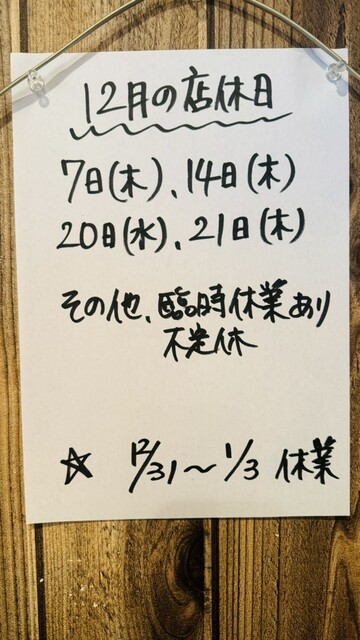 12月の店休日
7日(木)、14日(木)
20日(水)、21日(木)
その他、臨時休業あり
不定休
☆ 12/31〜1/3 休業